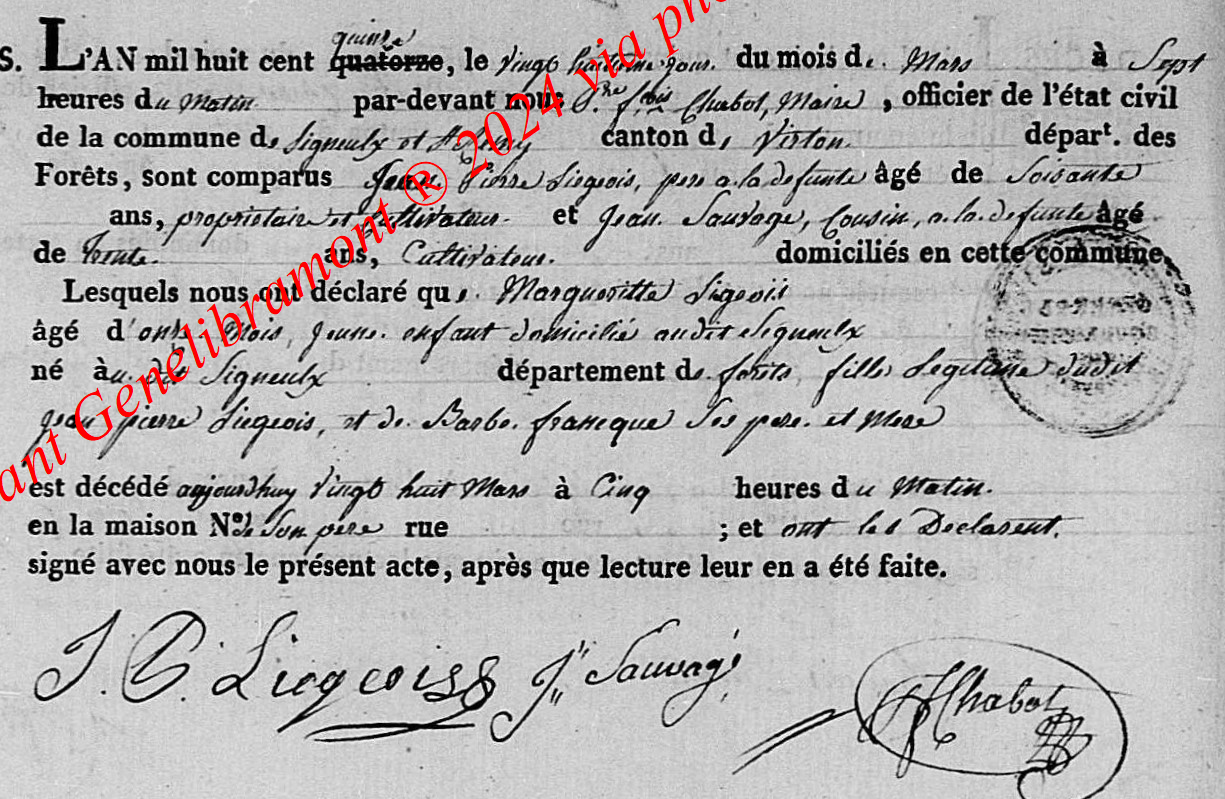 quinze
S. L'AN mil huit cent quatorze, le vingt huitieme jour du mois de Mars à Sept
heures du Matin par-devant nous P.re f.cois Chabot, Maire, officier de l'état civil
de la commune de Signeulx et canton de Virton départ. des
Forêts, sont comparus Jean Pierre Liegeois, pere a la defunte âgé de Soixante
ans, proprietaire et Cultivateur et Jean Sauvage, Cousin, a la defunte âgé
de Trente ans, Cultivateur. domiciliés en cette commune,
Lesquels nous ont déclaré que Margueritte Ligeois
âgé d'onze Mois, jeune enfant domicilié audit Signeulx
né à Signeulx département de forets, fille Legitime dudit
jean pierre Liegeois, et de Barbe francque Ses pere et Mere
est décédé aujourdhuy vingt huit Mars à Cinq heures du Matin.
en la maison No. de Son pere rue ; et ont les Declarent.
signé avec nous le présent acte, après que lecture leur en a été faite.
J. P. Liegeois J. Sauvage Chabot
ant Genelibramont ® 2024 via pho